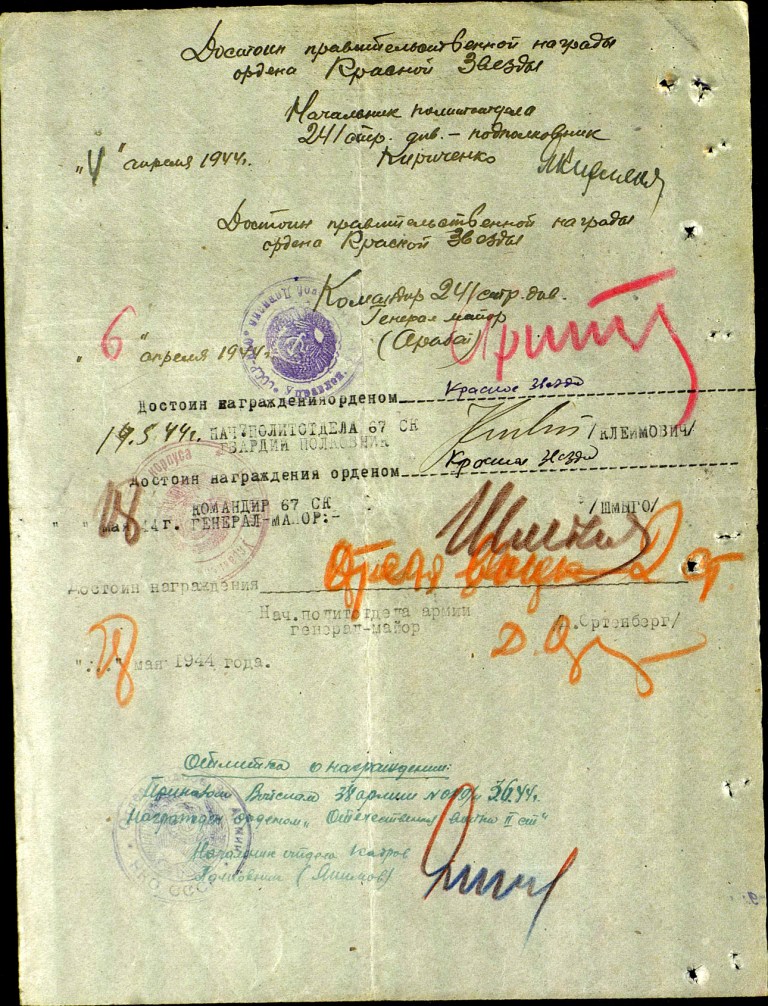 Достоин правительственной награды
ордена Красной Звезды
Начальник политотдела
241 стр. див. – подполковник
"4" апреля 1944г. Кириченко
Достоин правительственной награды
ордена Красной Звезды
Командир 241 стр. див.
Генерал майор
"6" апреля 1944г. (Арабей)
Достоин награждения орденом Красное Звезда
19.5.44г. НАЧ.ПОЛИТОТДЕЛА 67 СК /КЛЕИМОВИЧ/
ГВАРДИИ ПОЛКОВНИК
Достоин награждения орденом Красная Звезда
КОМАНДИР 67 СК /ШМЫГО/
"18" мая 44г. ГЕНЕРАЛ-МАЙОР:-
Достоин награждения Отеч войны 2 ст.
Нач.политотдела армии
генерал-майор /Д.Ортенберг/
"28" мая 1944 года.
Отметка о награждении:
Приказом Войскам 38 армии 3.6.44г.
Награжден орденом "Отечественная война II ст"
Начальник отдела кадров
Полковник (Акимов)